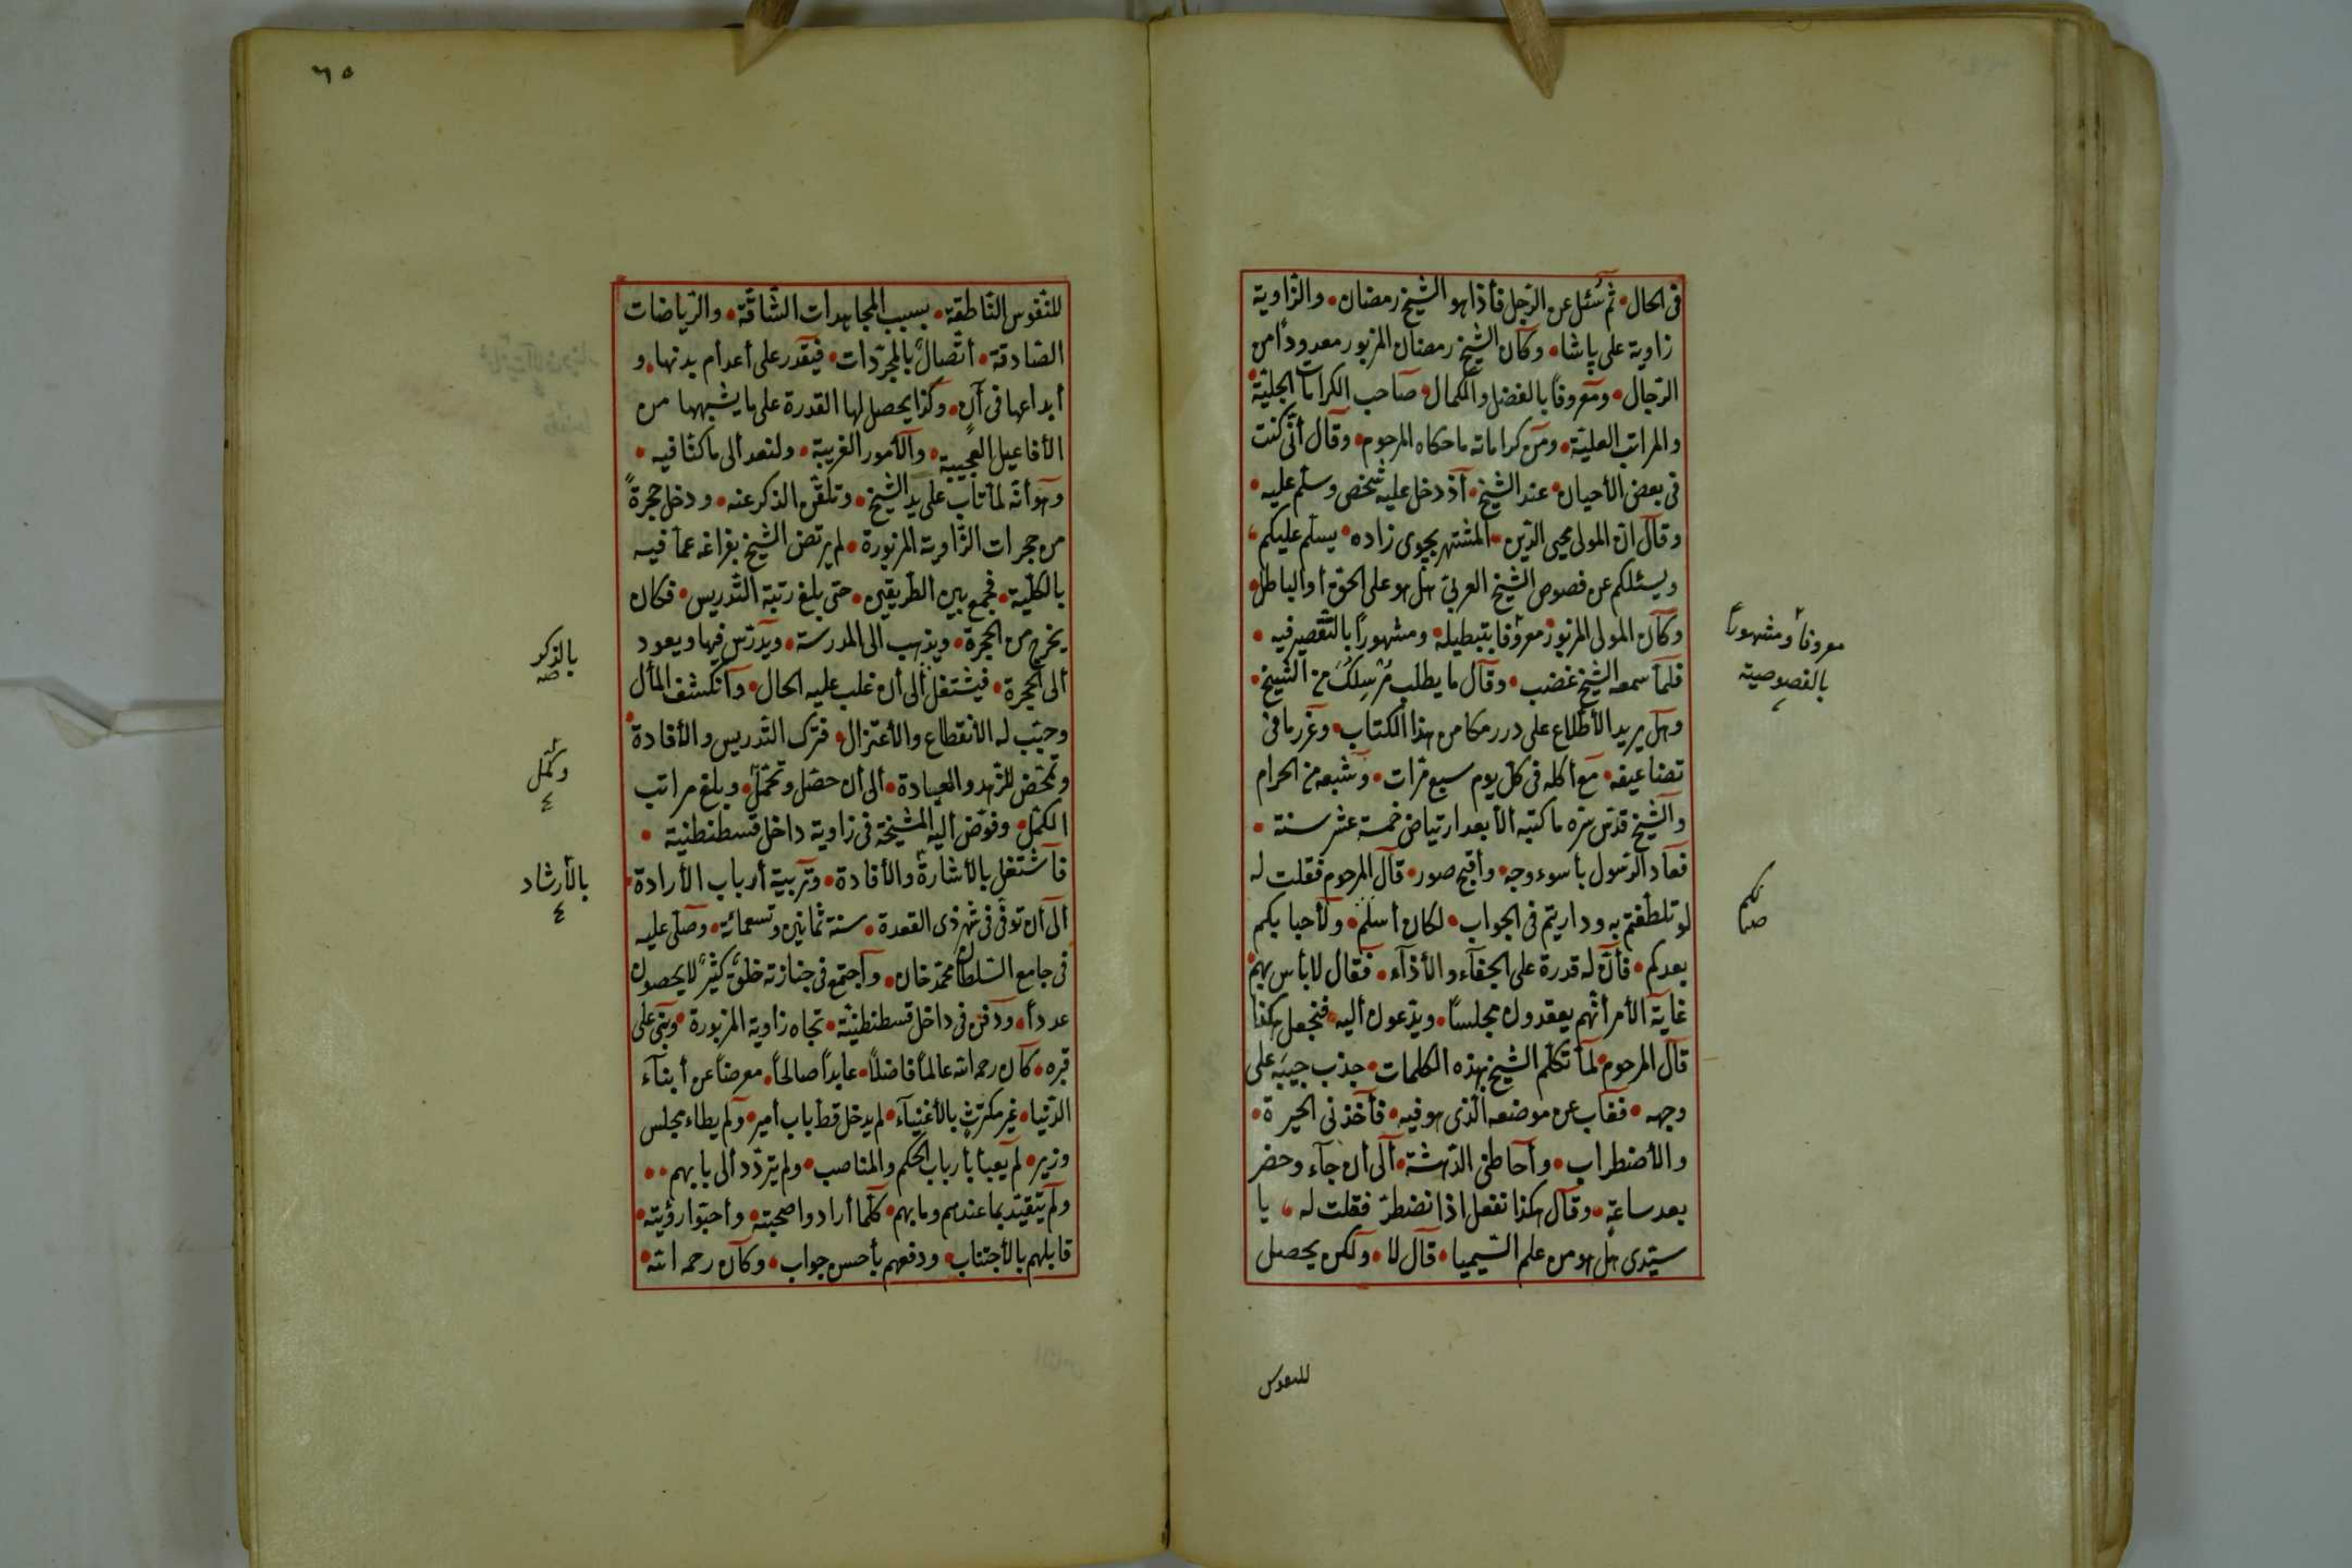 فى الحال • ثم سئل عن الرّجل فأذا هو الشيخ رمضان • والزّاوية
زاوية على پاشا • وكان الشيخ رمضان المزبور معدوداً من
الرّجال • ومعروفاً بالفضل والكمال • صاحب الكرامات الجليّة •
والمراتب العليّة • ومن كراماته ما حكاه المرحوم • وقال أنّى كنت
فى بعض الأحيان • عند الشيخ • أذ دخل عليه شخص وسلّم عليه •
وقال انّ المولى محيى الدّين • المشتهر بچوى زاده • يسلّم عليكم
ويسئلكم عن فصوص الشيخ العربىّ هل هو على الحقّ أو الباطل •
وكان المولى المزبور معروفا بتبطيله • ومشهوراً بالتّقصير فيه •
معروفاً ومشهوراً
بالفصوصية
فلمّا سمعه الشيخ غضب • وقال ما يطلب مرسلك من الشيخ •
وهل يريد الأطّلاع على درر مكامن هذا الكتاب • وغرر ما فى
تضاعيفه • مع أكله فى كلّ يوم سبع مرّات • وشبعه من الحرام
والشيخ قدّس سرّه ما كتبه الأ بعد ارتياض خمسة عشر سنة •
فعاد الرّسول بأسوء وجه • وأقبح صور • قال المرحوم فقلت له
لو تلطّفتم به وداريتم فى الجواب • لكان أسلم • ولأحبابكم
بعدكم • فأنّ له قدرة على الجفآء والأذآء • فقال لا بأس بهم
غاية الأمر أنّهم يعقدون مجلساً • ويدّعون أليه • فنجعل هكذا
قال المرحوم • لمّا تكلّم الشيخ بهذه الكلمات • جذب جيبه على
وجهه • فغاب عن موضعه الّذى هو فيه • فأخذنى الحيرة •
والأضطراب • وأحاطنى الدّهشة • ألى أن جآء وحضر
بعد ساعة • وقال هكذا نفعل اذا نضطرّ فقلت له • يا
سيّدى هل هو من علم السّيميا • قال لا • ولكن يحصل
للنفوس
٦٥
للنّفوس النّاطقة • بسبب المجاهدات الشّاقّة • والرّياضات
الصّادقة • أتّصال بالمجرّدات • فيقدر على أعدام بدنها • و
أبداعها فى آن • وكذا يحصل لها القدرة على ما يشبهها من
الأفاعيل العجيبة • والأمور الغريبة • ولنعد ألى ما كنّا فيه •
وهو أنّه لمّا تاب على يد الشيخ • وتلقّن الذكر عنه • ودخل حجرةً
من حجرات الزّاوية المزبورة • لم يرتض الشيخ بفراغه عمّا فيه
بالكلّية • فجمع بين الطّريقين • حتى بلغ رتبة التّدريس • فكان
يخرج من الحجرة • ويذهب الى المدرسة • ويدرّس فيها ويعود
ألى الحجرة • فيشتغل ألى أن غلب عليه الحال • وانكشف المأل
بالذكر
صه
وحبّب له الأنقطاع والأعتزال • فترك التّدريس والأفادة •
وتمحّض للزّهد والعبادة • ألى أن حصّل وتحمّل • وبلغ مراتب
وكمّل
الكمّل • وفوّض أليه المشيخة فى زاوية داخل قسطنطنية •
فاشتغل بالأشارة والأفادة • وتربية أرباب الأرادة •
بالأرشاد
ألى أن توفّى فى شهر ذى القعدة • سنة ثمانين وتسعمائة • وصلّى عليه
فى جامع السّلطان محمّد خان • واجتمع فى جنازته خلق كثير لا يحصون
عدداً • ودفن فى داخل قسطنطنيّة • تجاه زاوية المزبورة • وبنى على
قبره • كان رحمه الله عالماً فاضلاً • عابداً صالحاً • معرضاً عن أبنآء
الدّنيا • غير مكترث بالأغنيآء • لم يدخل قطّ باب أمير • ولم يطاء مجلس
وزير • لم يعبأ بأرباب الحكم والمناصب • ولم يتردّد ألى بابهم ••
ولم يتقيّد بما عندهم وما بهم • كلّما أرادوا صحبته • وأحبّوا رؤيته •
قابلهم بالأجتناب • ودفعهم بأحسن جواب • وكان رحمه الله •